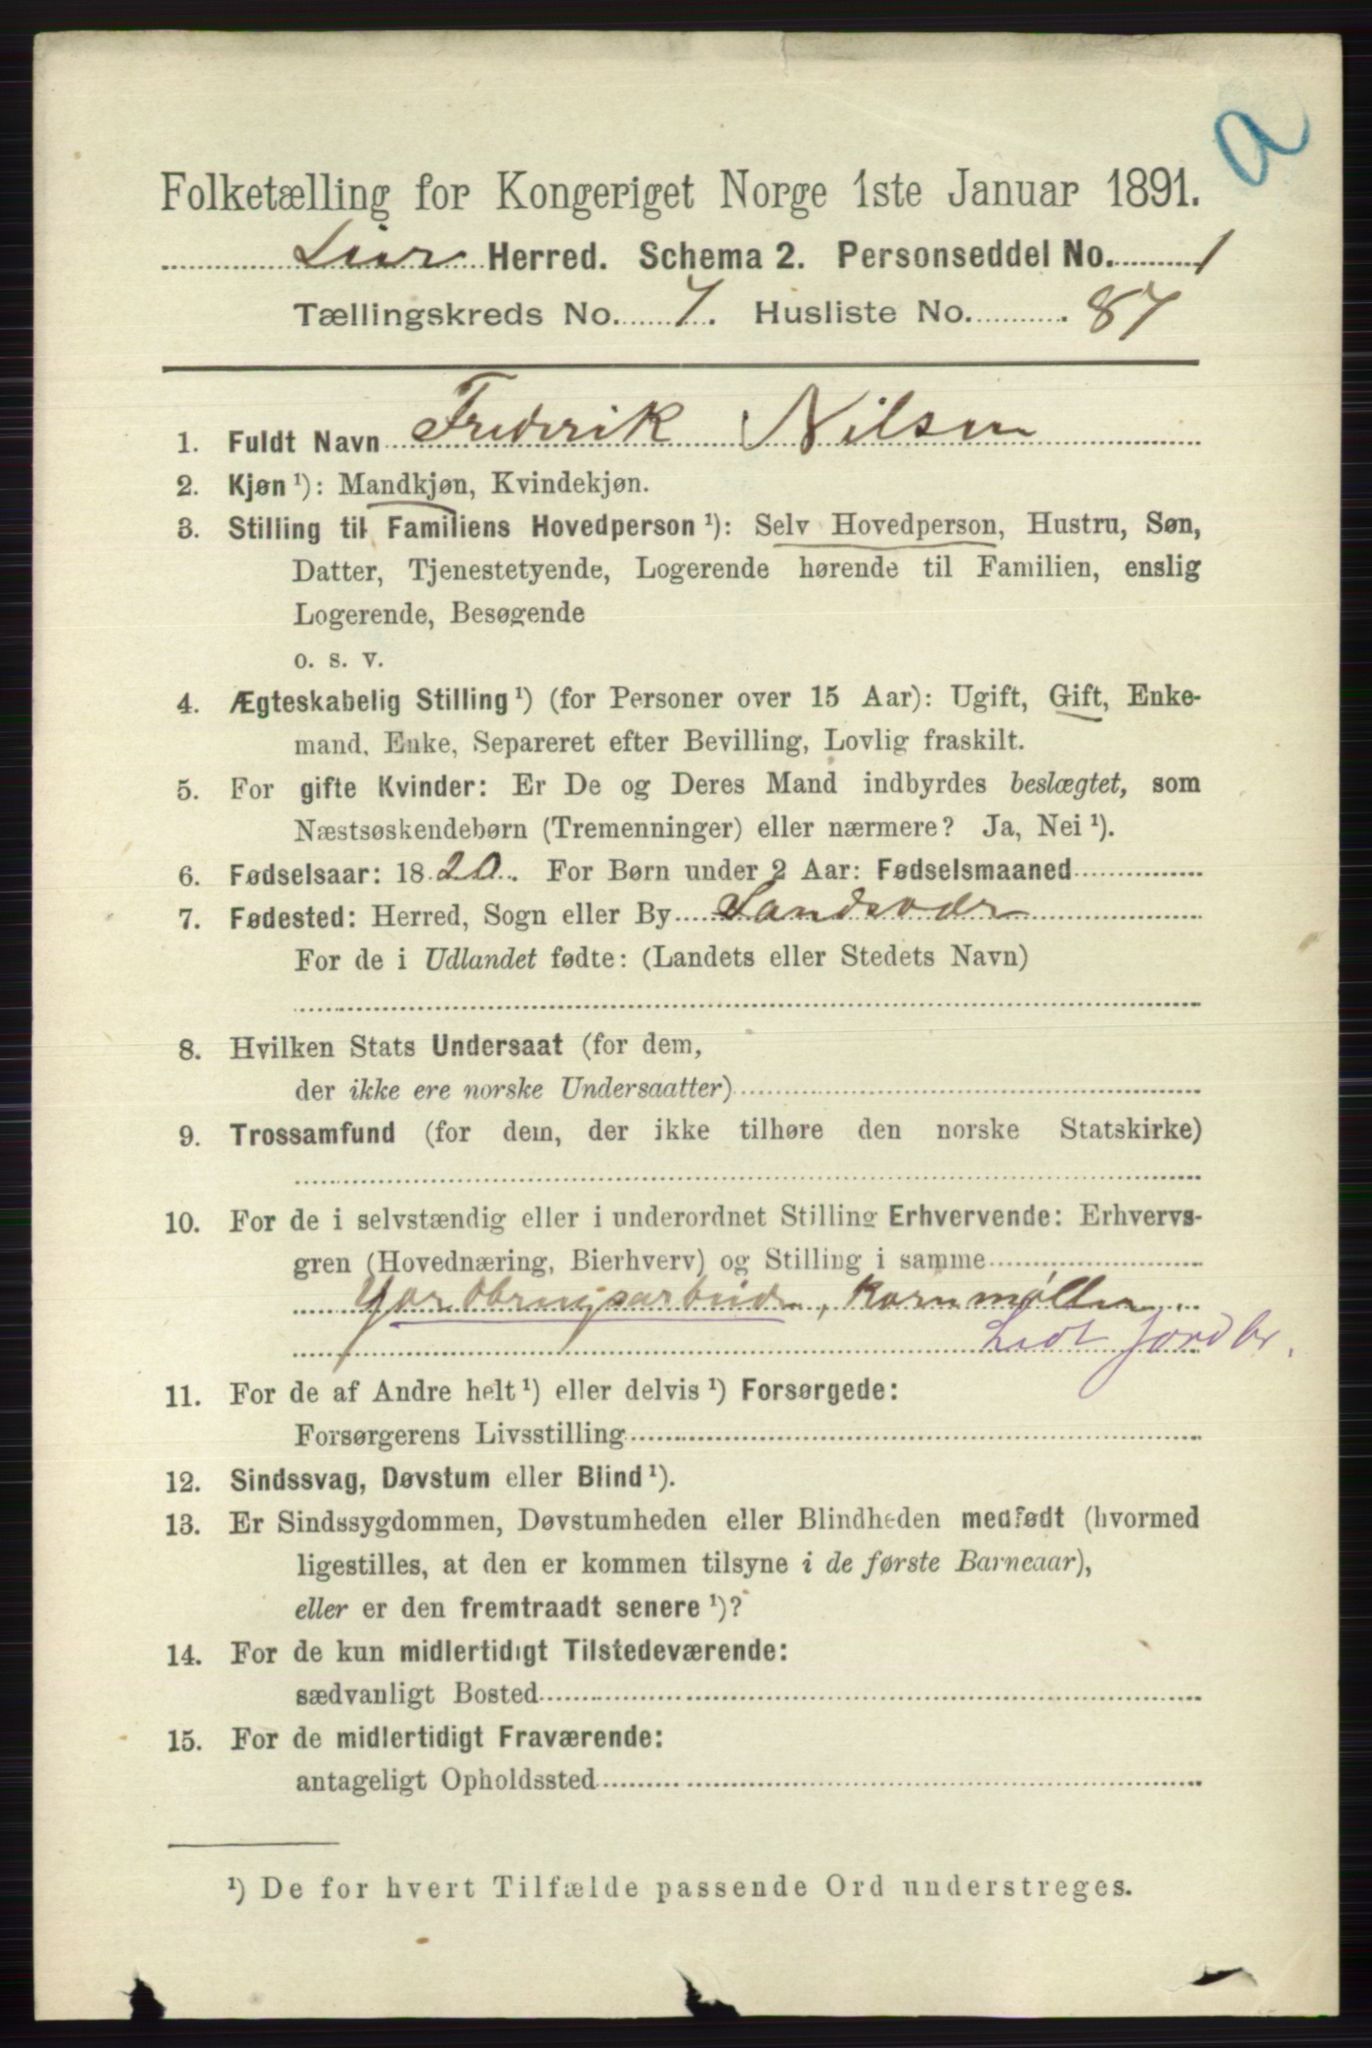 a
Folketælling for Kongeriget Norge 1ste Januar 1891.
Lier Herred. Schema 2. Personseddel No. 1
Tællingskreds No. 7. Husliste No. 87
1. Fuldt Navn Frederik Nilsen
2. Kjøn ¹): Mandkjøn, Kvindekjøn.
3. Stilling til Familiens Hovedperson ¹): Selv Hovedperson, Hustru, Søn,
Datter, Tjenestetyende, Logerende hørende til Familien, enslig
Logerende, Besøgende
o. s. v.
4. Ægteskabelig Stilling ¹) (for Personer over 15 Aar): Ugift, Gift, Enke-
mand, Enke, Separeret efter Bevilling, Lovlig fraskilt.
5. For gifte Kvinder: Er De og Deres Mand indbyrdes beslægtet, som
Næstsøskendebørn (Tremenninger) eller nærmere? Ja, Nei ¹).
6. Fødselsaar: 1820. For Børn under 2 Aar: Fødselsmaaned
7. Fødested: Herred, Sogn eller By Sandsvær
For de i Udlandet fødte: (Landets eller Stedets Navn)
8. Hvilken Stats Undersaat (for dem,
der ikke ere norske Undersaatter)
9. Trossamfund (for dem, der ikke tilhøre den norske Statskirke)
10. For de i selvstændig eller i underordnet Stilling Erhvervende: Erhvervs-
gren (Hovednæring, Bierhverv) og Stilling i samme
Jordbrugsarbeider, Kornmøller.
Lidt Jordbr.
11. For de af Andre helt ¹) eller delvis ¹) Forsørgede:
Forsørgerens Livsstilling
12. Sindssvag, Døvstum eller Blind ¹).
13. Er Sindssygdommen, Døvstumheden eller Blindheden medfødt (hvormed
ligestilles, at den er kommen tilsyne i de første Barneaar),
eller er den fremtraadt senere ¹)?
14. For de kun midlertidigt Tilstedeværende:
sædvanligt Bosted
15. For de midlertidigt Fraværende:
antageligt Opholdssted
¹) De for hvert Tilfælde passende Ord understreges.